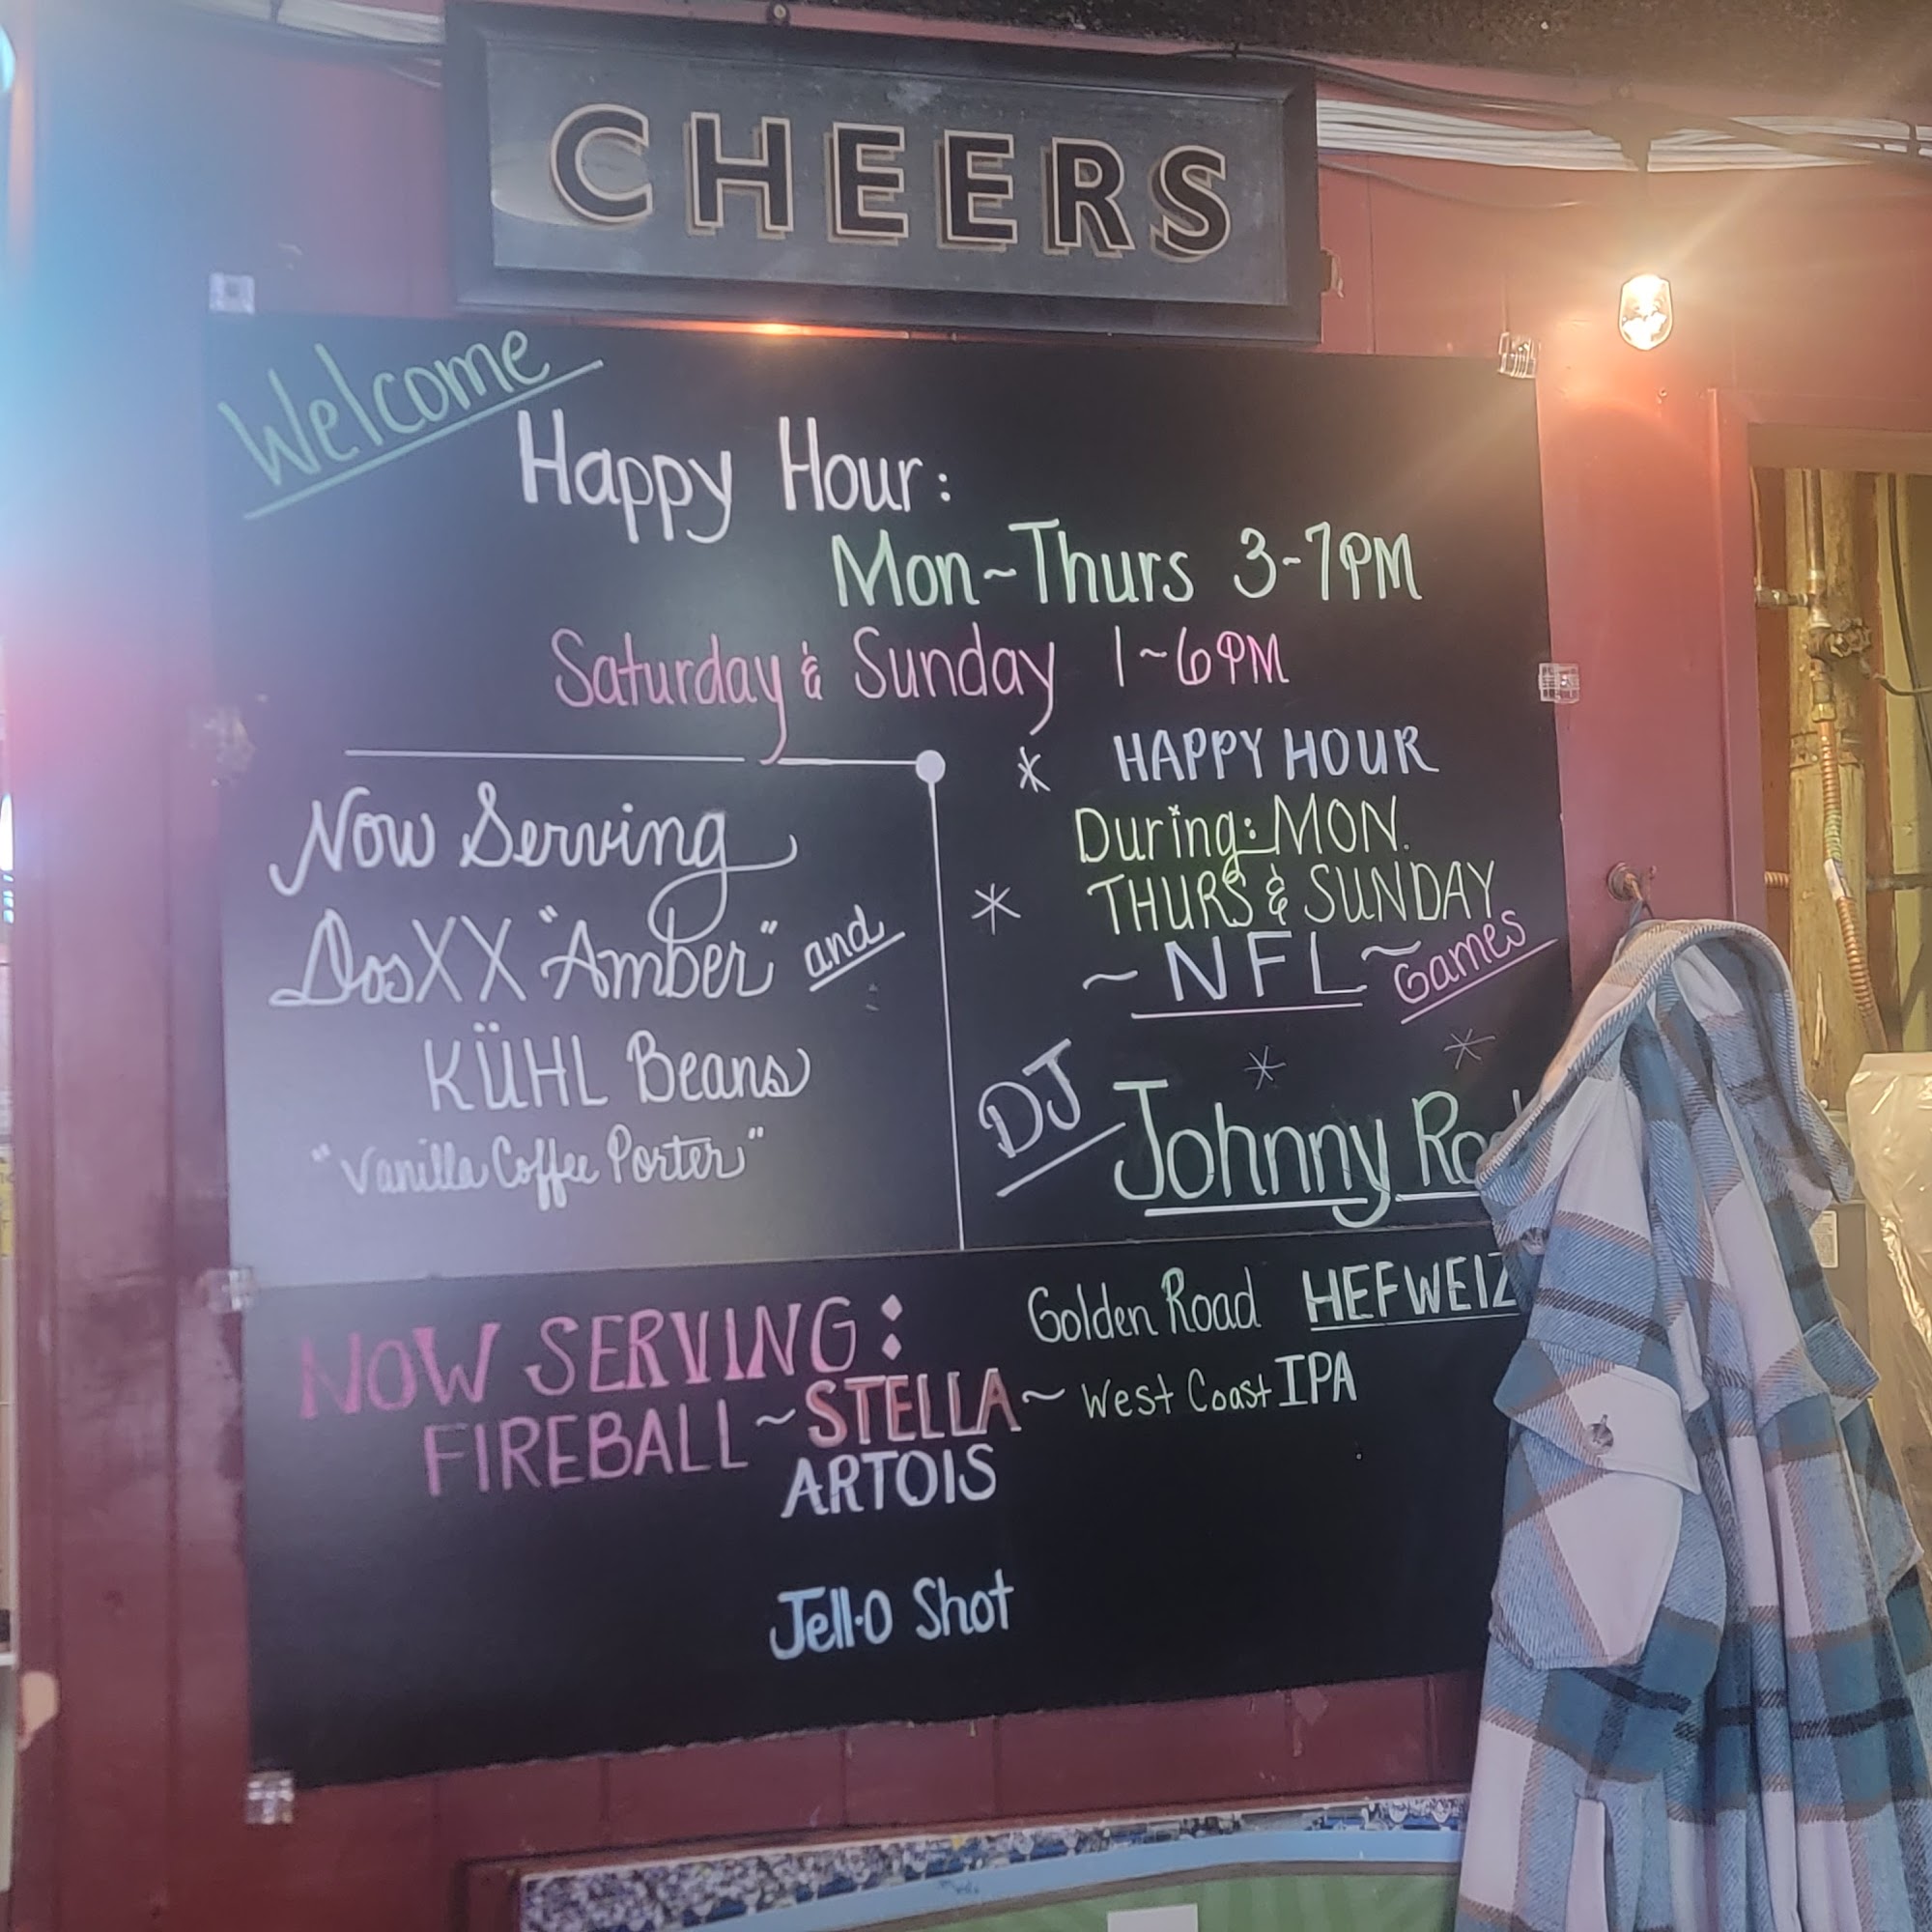 CHEERS
Welcome
Happy Hour:
Mon~Thurs 3-7PM
Saturday & Sunday 1~6PM
* HAPPY HOUR
During: MON.
* THURS & SUNDAY
~ NFL ~ Games
Now Serving
DosXX "Amber" and
KÜHL Beans
"Vanilla Coffee Porter"
* *
DJ Johnny
NOW SERVING:
FIREBALL ~ STELLA ~
ARTOIS
Golden Road HEFWEIZ
West Coast IPA
Jell-O Shot